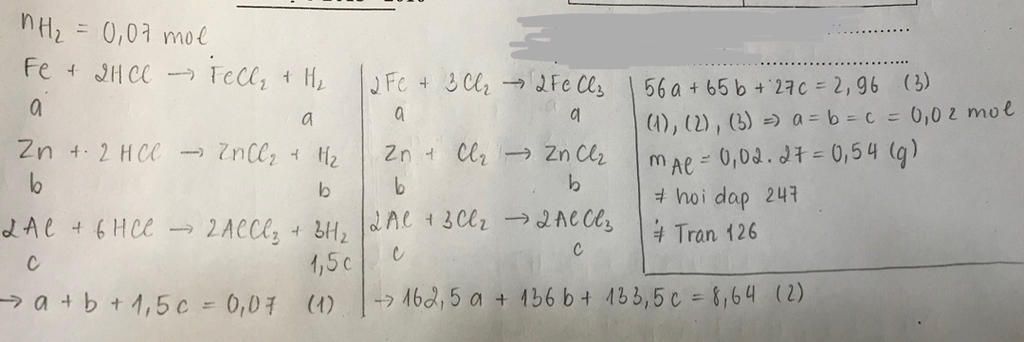 nH₂ = 0,07 mol
Fe + 2HCl → FeCl₂ + H₂
a a
Zn + 2HCl → ZnCl₂ + H₂
b b
2Al + 6HCl → 2AlCl₃ + 3H₂
c 1,5c
→ a + b + 1,5c = 0,07 (1)
2Fe + 3Cl₂ → 2FeCl₃
a a
Zn + Cl₂ → ZnCl₂
b b
2Al + 3Cl₂ → 2AlCl₃
c c
→ 162,5a + 136b + 133,5c = 8,64 (2)
56a + 65b + 27c = 2,96 (3)
(1), (2), (3) ⇒ a = b = c = 0,02 mol
mAl = 0,02. 27 = 0,54 (g)
# hoi dap 247
# Tran 126